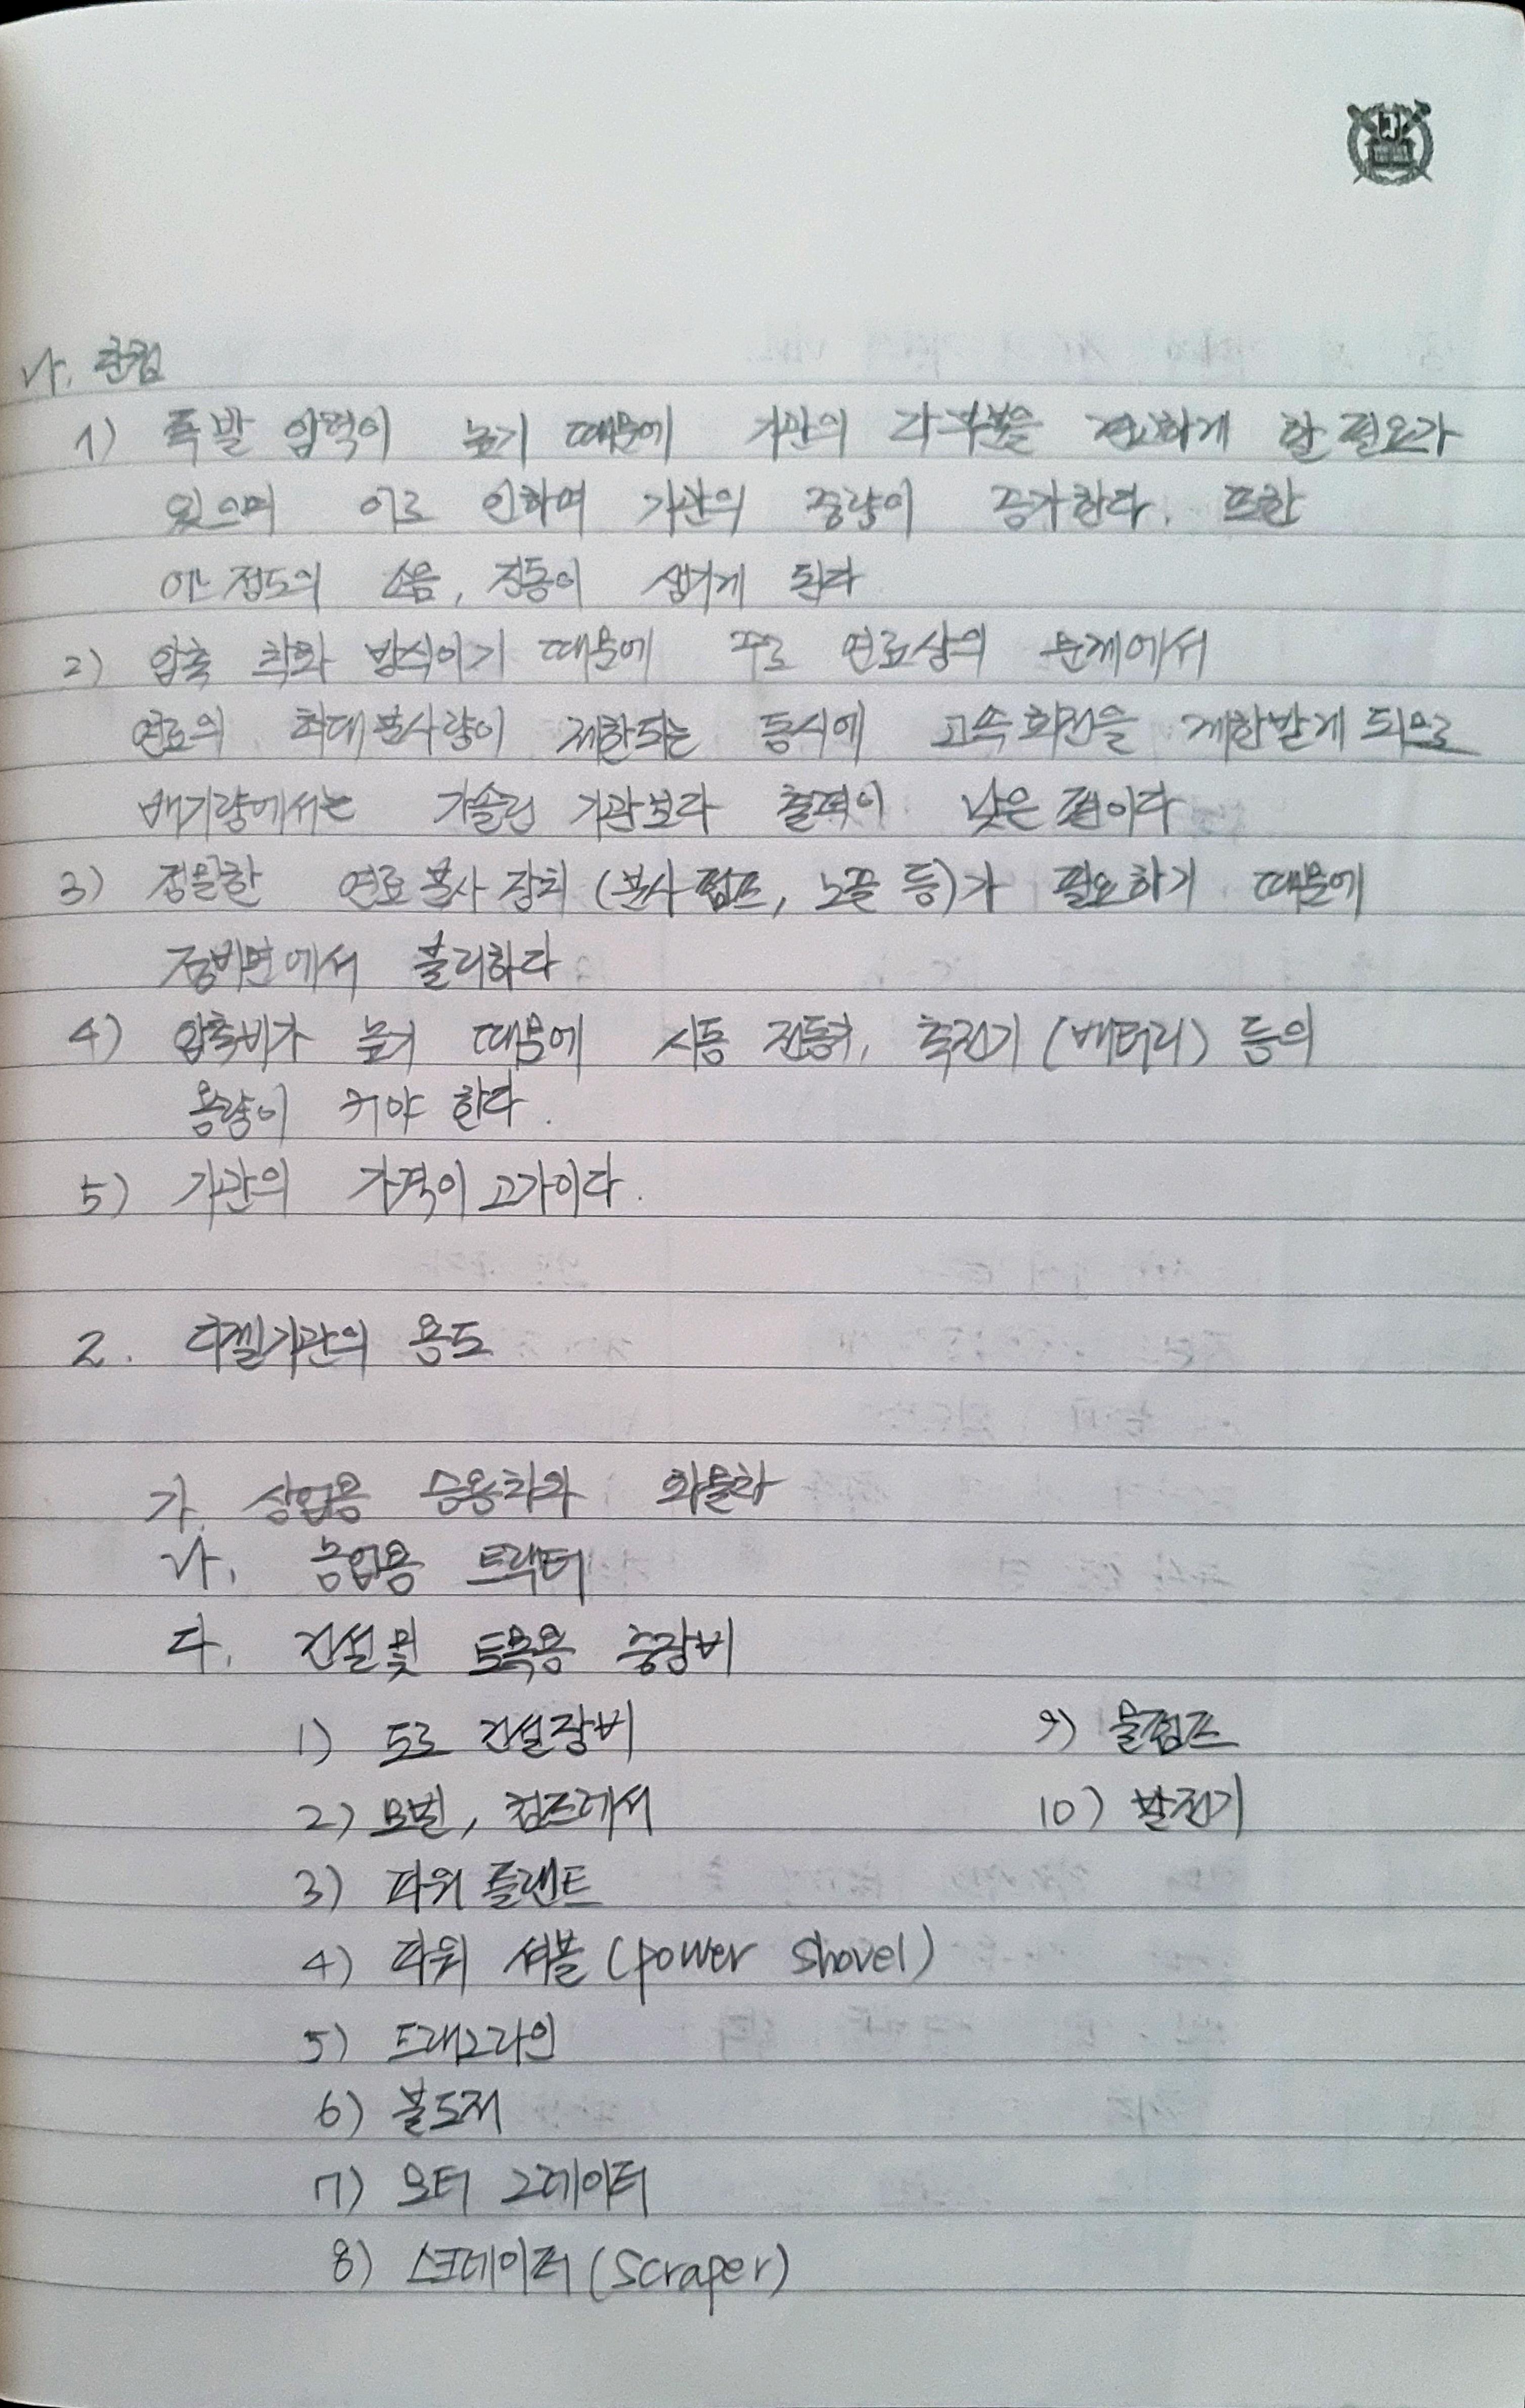 나. 단점
1) 폭발 압력이 높기 때문에 기관의 각 부분을 견고하게 할 필요가
있으며 이로 인하여 기관의 중량이 증가한다. 또한
어느정도의 소음, 진동이 생기게 된다
2) 압축 착화 방식이기 때문에 주로 연료상의 문제에서
연료의 최대분사량이 제한되는 동시에 고속회전을 제한받게 되므로
배기량에서는 가솔린 기관보다 출력이 낮은 편이다
3) 정밀한 연료분사장치 (분사펌프, 노즐 등)가 필요하기 때문에
정비면에서 불리하다
4) 압축비가 높기 때문에 시동 전동기, 축전기 (배터리) 등의
용량이 커야 한다.
5) 기관의 가격이 고가이다.
2. 디젤기관의 용도
가. 상업용 승용차와 화물차
나. 농업용 트랙터
다. 건설 및 토목용 중장비
1) 도로 건설장비
2) 모빌, 컴프레서
3) 파워 플랜트
4) 파워 셔블 (power shovel)
5) 드래그라인
6) 불도저
7) 모터 그레이더
8) 스크레이퍼 (scraper)
9) 물펌프
10) 발전기